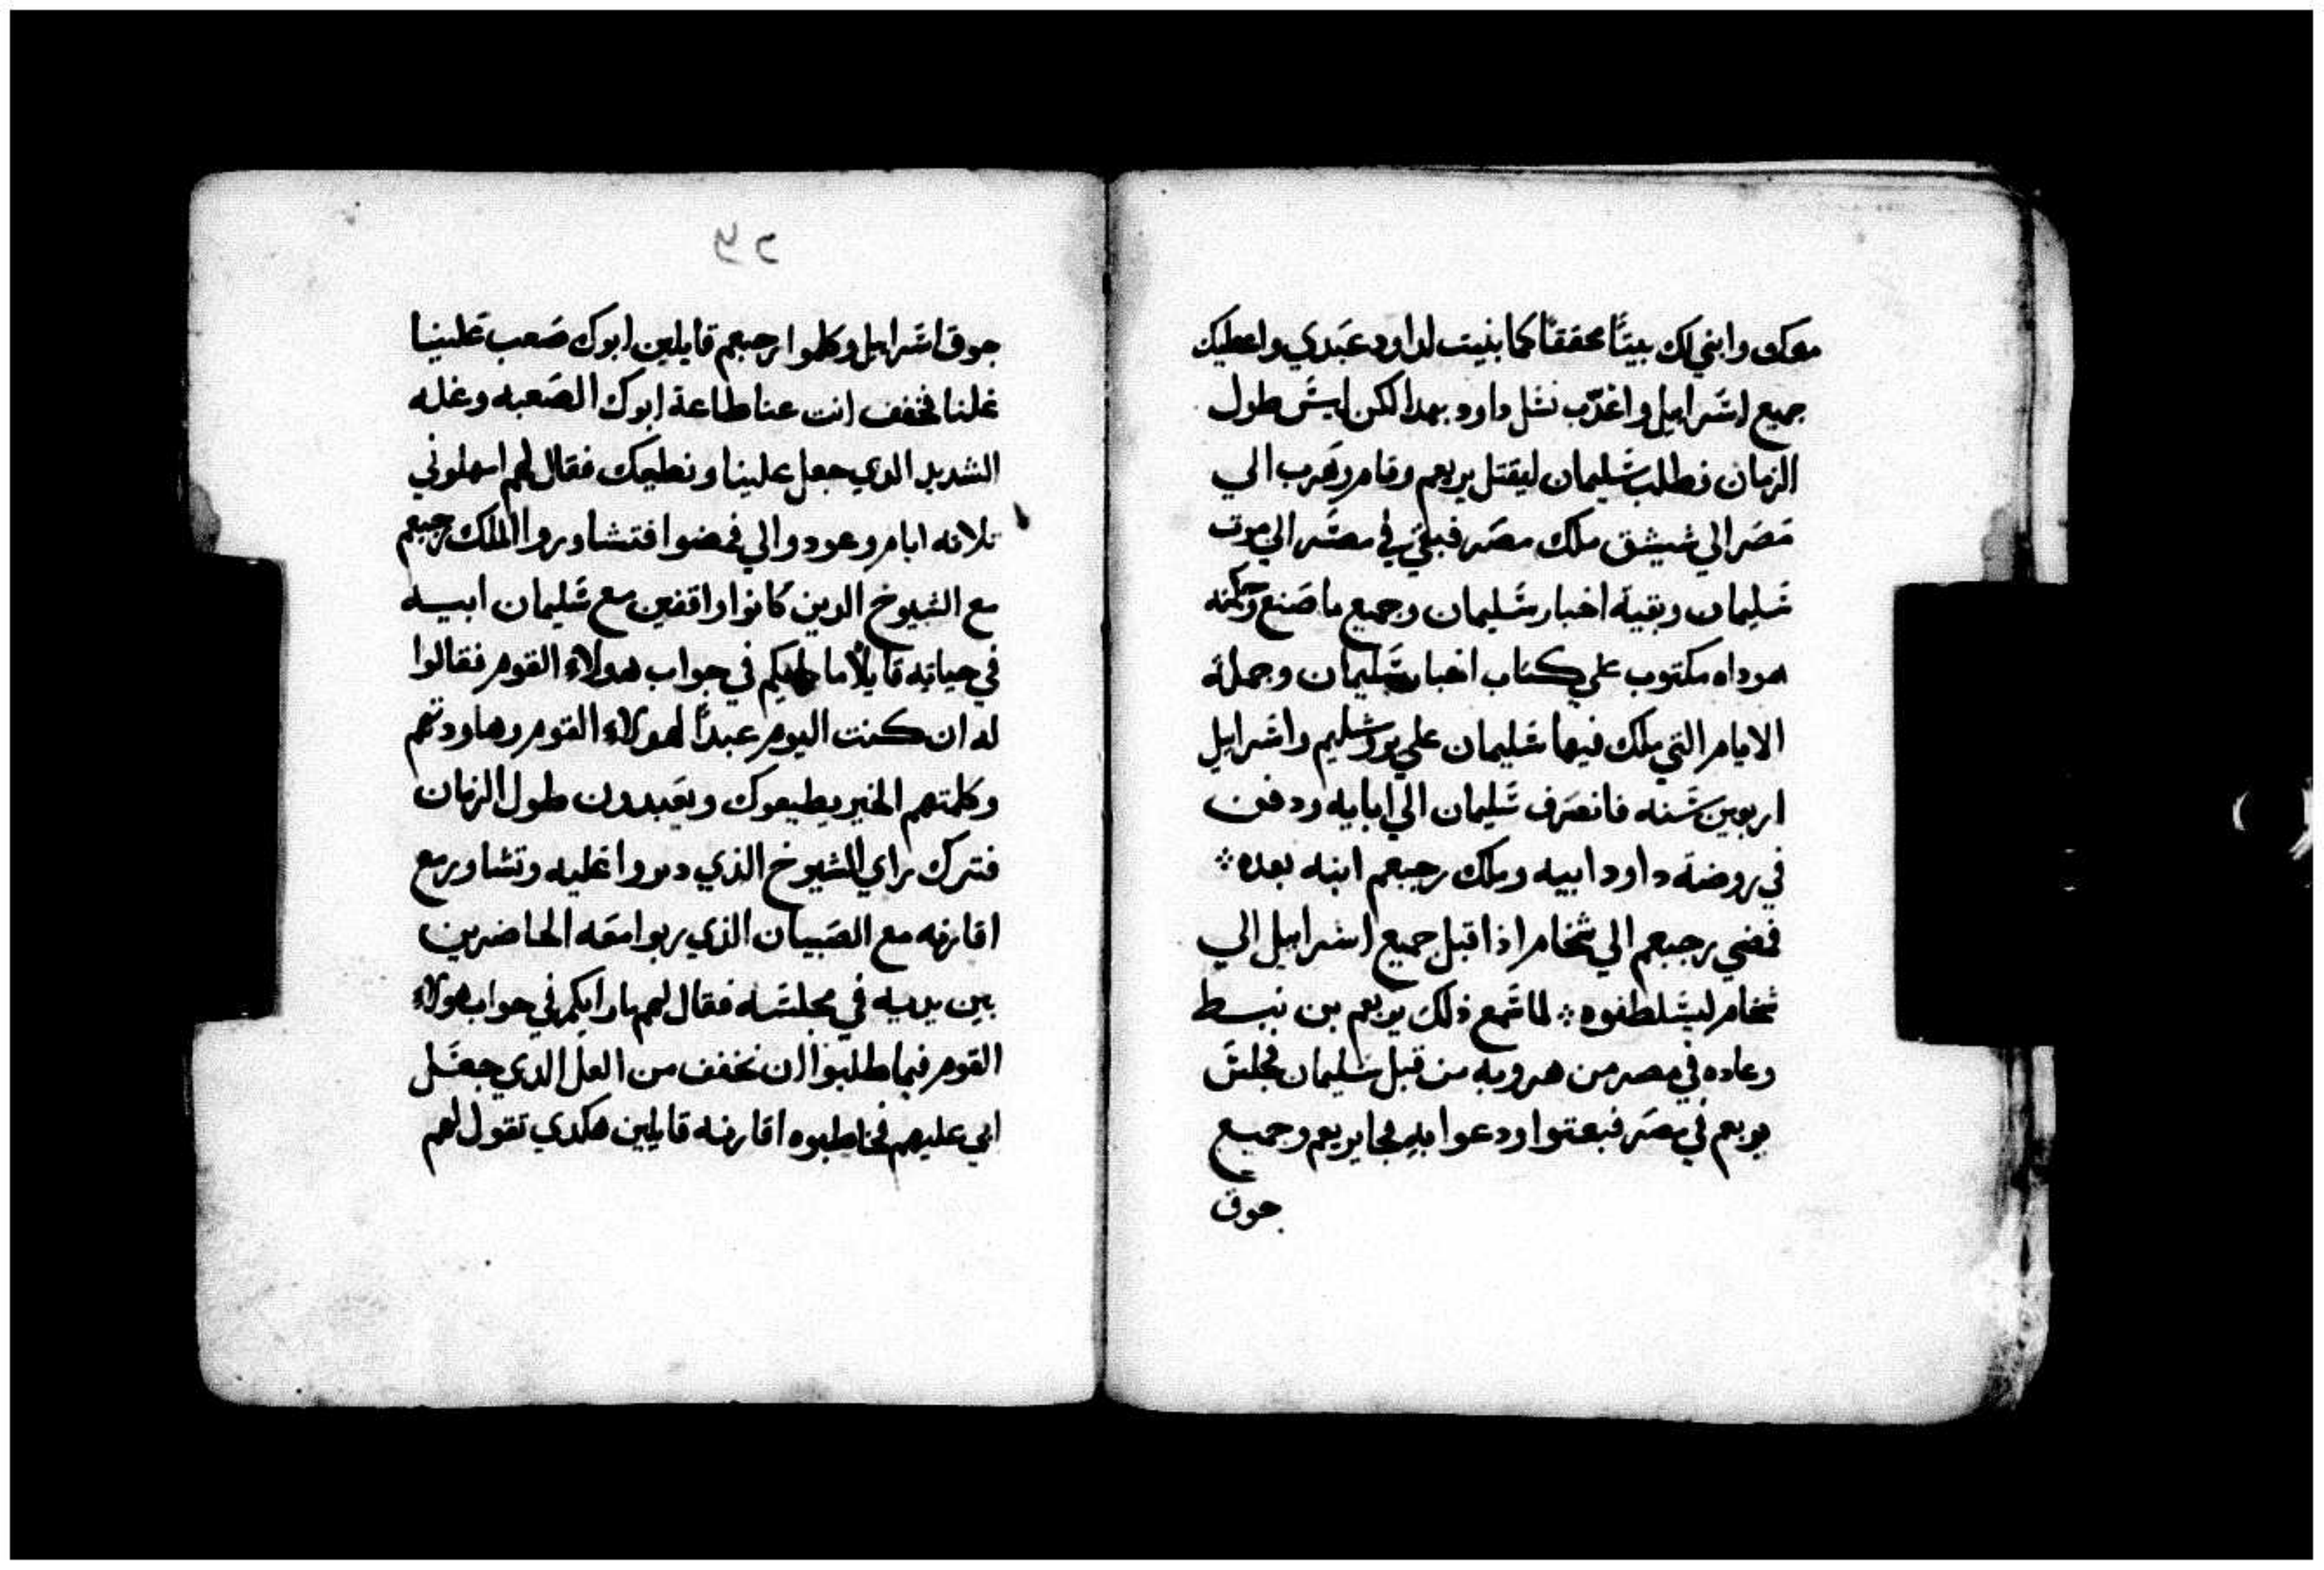 معك وابني لك بيتًا محققًا كما بنيت لداود عبدي واعطيك
جميع اسرايل واعذب نسل داود بهدا لكن ليس طول
الزمان فطلب سليمان ليقتل يربعم وقام وهرب الي
مصر الي شيشق ملك مصر فبقي في مصر الي موت
سليمان وبقية اخبار سليمان وجميع ما صنع وحكمته
هوداه مكتوب علي كتاب اخبار سليمان وجملة
الايام التي ملك فيها سليمان علي يورشليم واسرايل
اربعين سنه فانصرف سليمان الي ابايه ودفن
في روضة داود ابيه وملك رحبعم ابنه بعده
فمضي رحبعم الي شخام اذ اقبل جميع اسرايل الي
شخام ليسلطفوه لما سمع ذلك يربعم بن نبط
وعاده في مصر من هروبه من قبل سليمان فجلس
يربعم في مصر فبعتوا ودعوا به فجا يربعم وجميع
جوق
٢٥
جوق اسرايل وكلموا رحبعم قايلين ابوك صعب علينا
غلنا فخفف انت عنا طاعة ابوك الصعبه وغله
الشديد الدي جعل علينا ونطيعك فقال لهم امهلوني
تلاته ايام وعودوا الي فمضوا فتشاور الملك رحبعم
مع الشيوخ الدين كانوا واقفين مع سليمان ابيه
في حياته قايلًا ما رايكم في جواب هولاء القوم فقالوا
له ان كنت اليوم عبدًا لهولاء القوم وهاودتهم
وكلمتهم الخير يطيعوك ويعبدون طول الزمان
فترك راي الشيوخ الذي دبروا عليه وتشاور مع
اقارنه مع الصبيان الذي ربوا معه الحاضرين
بين يديه في مجلسه فقال لهم ما رايكم في جواب هولاء
القوم فيما طلبوا ان نخفف من الغل الدي جعل
ابي عليهم فخاطبوه اقارنه قايلين هكدي تقول لهم